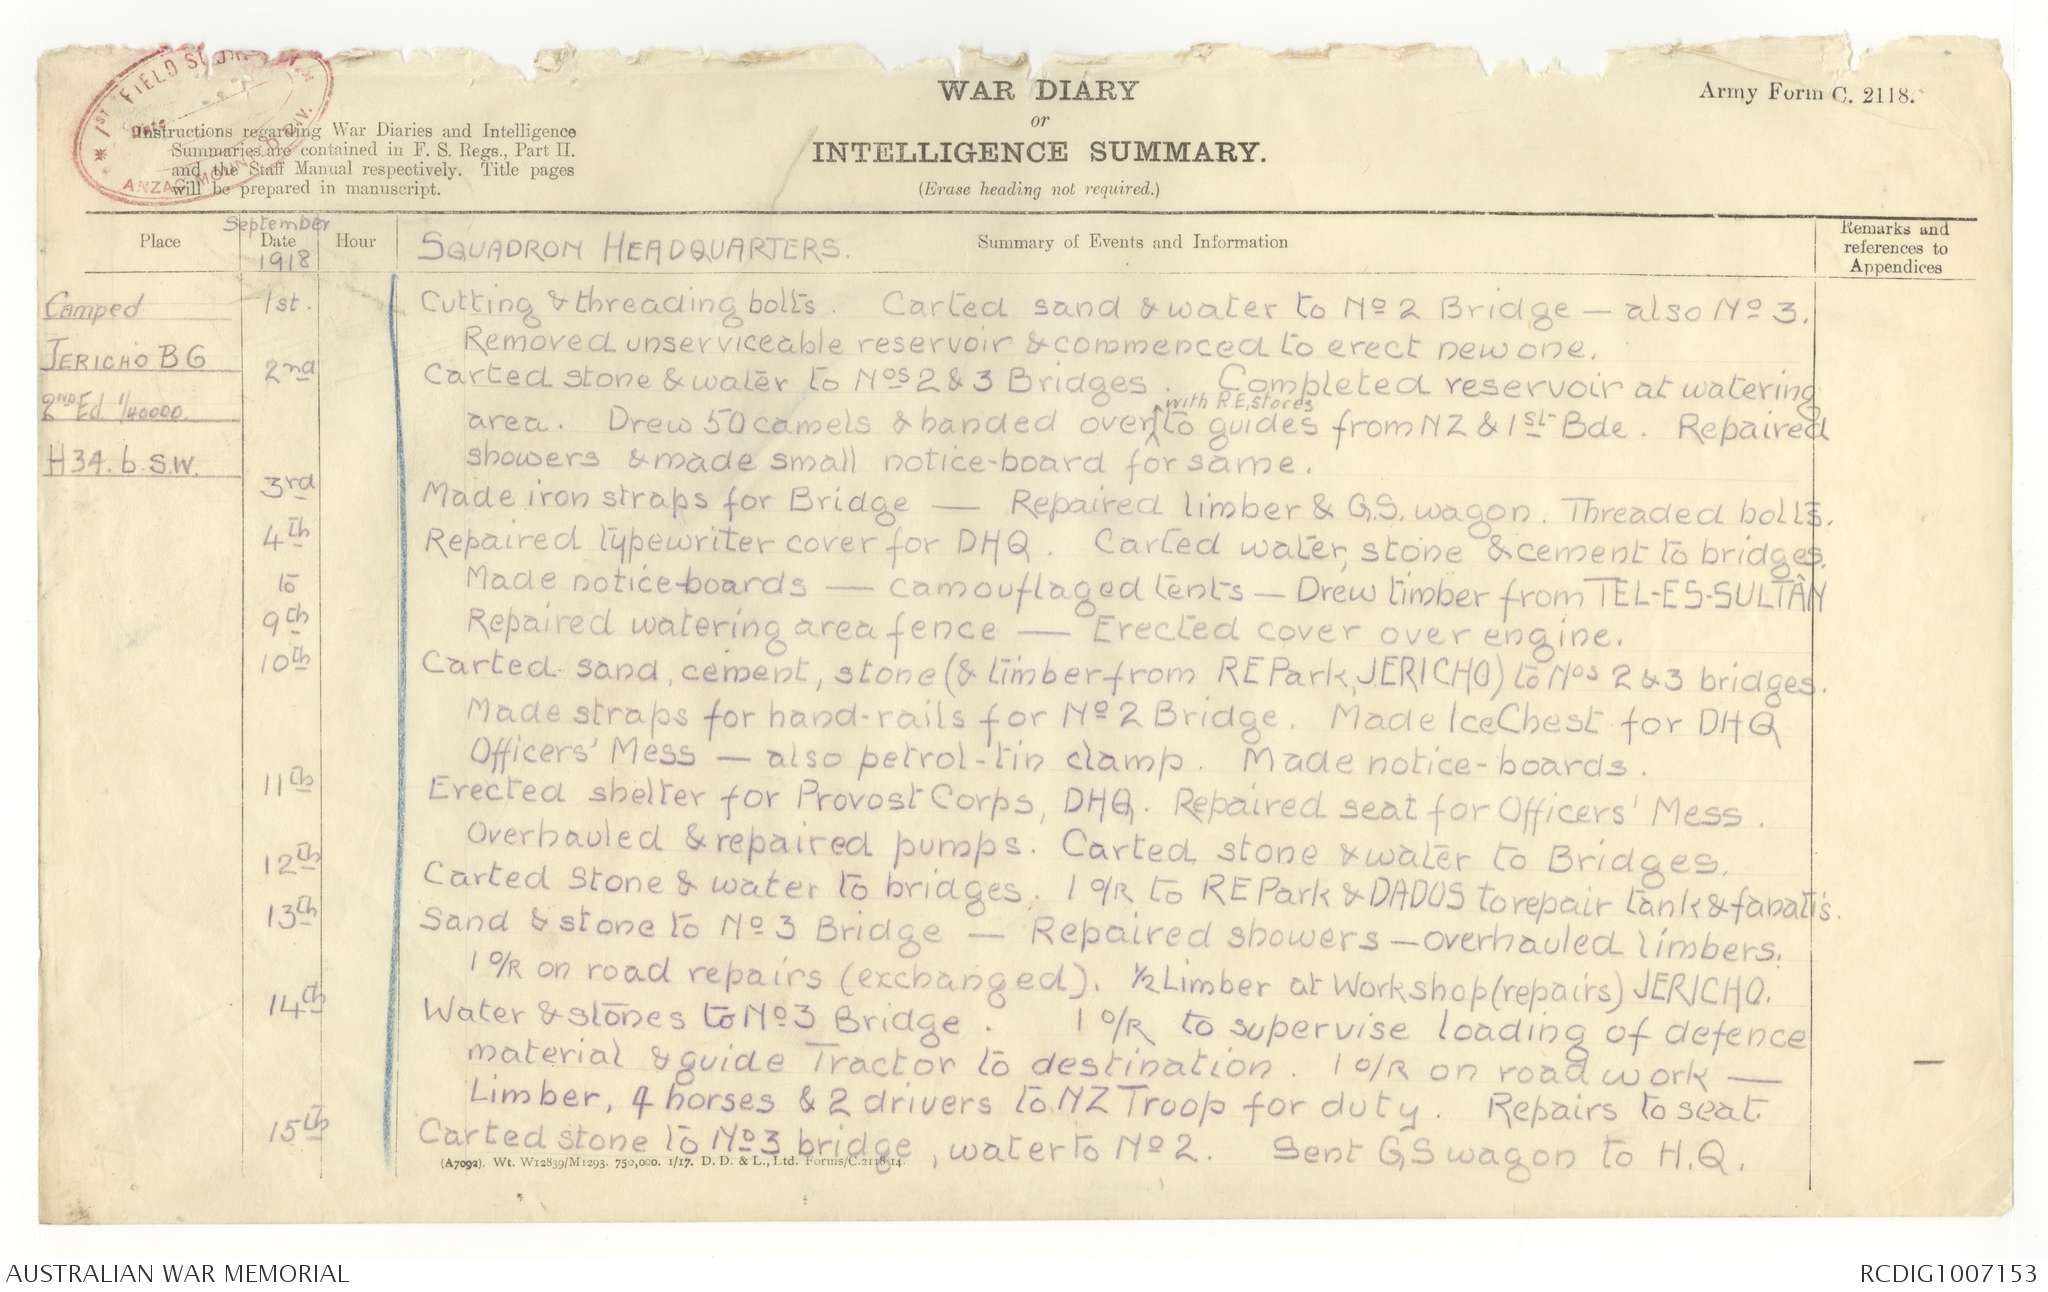 1ST FIELD
Date
ANZAC MOUNTED DIV.
Instructions regarding War Diaries and Intelligence
Summaries are contained in F. S. Regs., Part II.
and the Staff Manual respectively. Title pages
will be prepared in manuscript.
WAR DIARY
or
INTELLIGENCE SUMMARY.
(Erase heading not required.)
Army Form C. 2118.
Place
September
Date
1918
Hour
SQUADRON HEADQUARTERS.
Summary of Events and Information
Remarks and
references to
Appendices
Camped
JERICHO BG
2ND Ed 1/40000
H34.b.S.W.
1st. Cutting & threading bolts. Carted sand & water to No 2 Bridge — also No 3.
Removed unserviceable reservoir & commenced to erect new one.
2nd Carted stone & water to Nos 2 & 3 Bridges. Completed reservoir at watering
with R.E. stores
area. Drew 50 camels & handed over to guides from NZ & 1st Bde. Repaired
showers & made small notice-board for same.
3rd Made iron straps for Bridge — Repaired limber & G.S. wagon. Threaded bolts.
4th Repaired typewriter cover for DHQ. Carted water, stone & cement to bridges.
to Made notice-boards — camouflaged tents — Drew timber from TEL-ES-SULTÂN
9th Repaired watering area fence — Erected cover over engine.
10th Carted sand, cement, stone (& timber from RE Park, JERICHO) to Nos 2 & 3 bridges.
Made straps for hand-rails for No 2 Bridge. Made Ice Chest for DHQ
Officers' Mess — also petrol-tin clamp. Made notice-boards.
11th Erected shelter for Provost Corps, DHQ. Repaired seat for Officers' Mess.
Overhauled & repaired pumps. Carted stone & water to Bridges.
12th Carted Stone & water to bridges. 1 O/R to RE Park & DADOS to repair tank & fanatis.
13th Sand & stone to No 3 Bridge — Repaired showers — overhauled limbers.
1 O/R on road repairs (exchanged). ½ Limber at Workshop (repairs) JERICHO.
14th Water & stones to No 3 Bridge. 1 O/R to supervise loading of defence
material & guide Tractor to destination. 1 O/R on road work —
Limber, 4 horses & 2 drivers to NZ Troop for duty. Repairs to seat.
15th Carted stone to No 3 bridge, water to No 2. Sent GS wagon to H.Q.
(A7092). Wt. W12839/M1293. 750,000. 1/17. D. D. & L., Ltd. Forms/C.2118/14.
AUSTRALIAN WAR MEMORIAL
RCDIG1007153